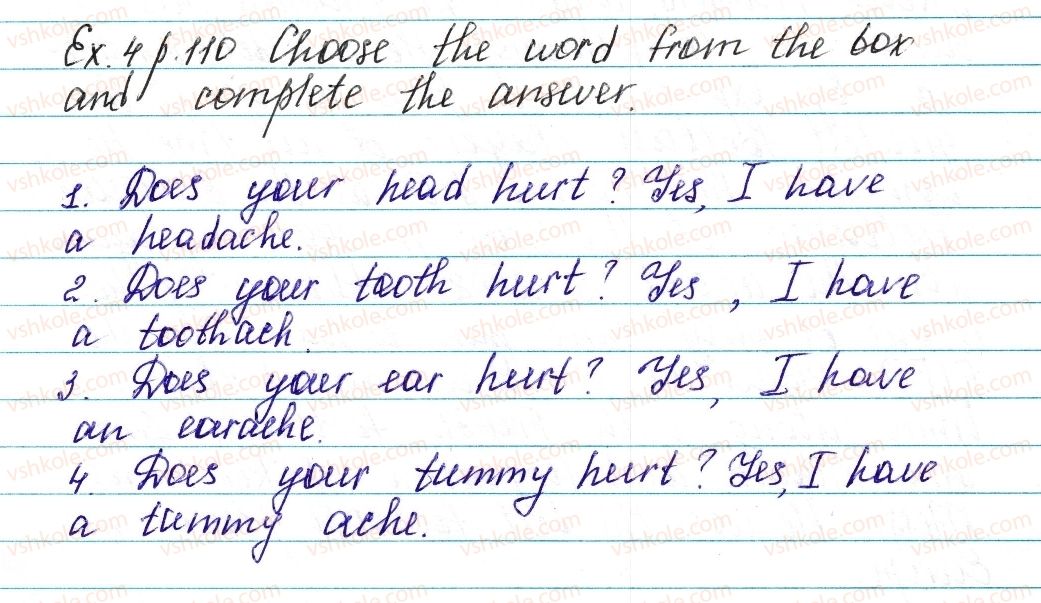 Ex. 4 p. 110 Choose the word from the box
and complete the answer.
1. Does your head hurt? Yes, I have
a headache.
2. Does your tooth hurt? Yes, I have
a toothach.
3. Does your ear hurt? Yes, I have
an earache.
4. Does your tummy hurt? Yes, I have
a tummy ache.